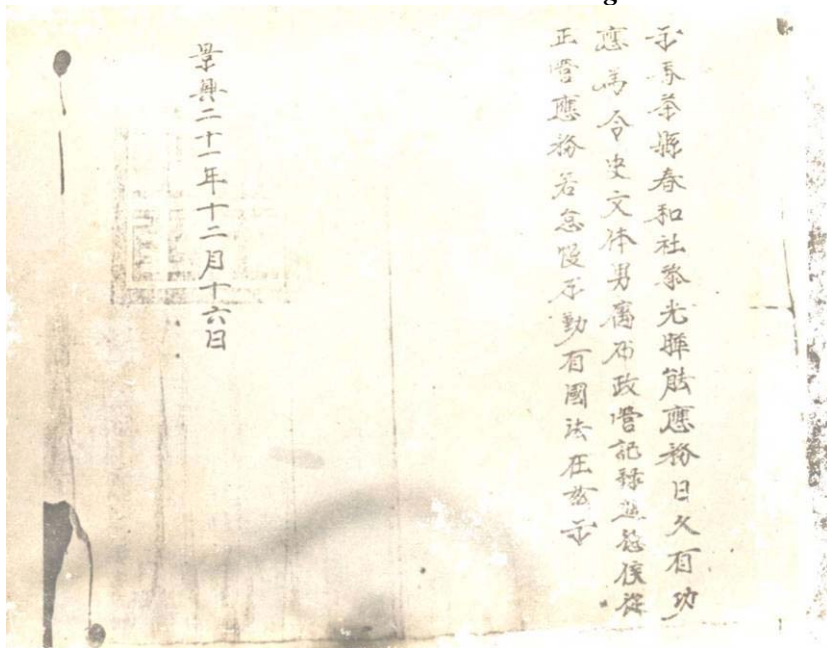 示香茶縣春和社黎光暉能應務日久有功
應為令史文体男屬布政營記祿並聽侯從
正營應務若怠慢不勤有國法在茲示
景興二十一年十二月十六日